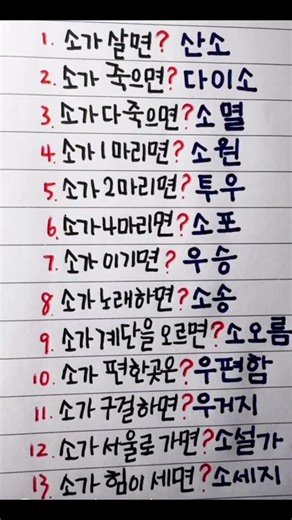 1. 소가 살면? 산소
2. 소가 죽으면? 다이소
3. 소가 다 죽으면? 소멸
4. 소가 1마리면? 소원
5. 소가 2마리면? 투우
6. 소가 4마리면? 소포
7. 소가 이기면? 우승
8. 소가 노래하면? 소송
9. 소가 계단을 오르면? 소오름
10. 소가 편한곳은? 우편함
11. 소가 구걸하면? 우거지
12. 소가 서울로 가면? 소설가
13. 소가 힘이 세면? 소세지